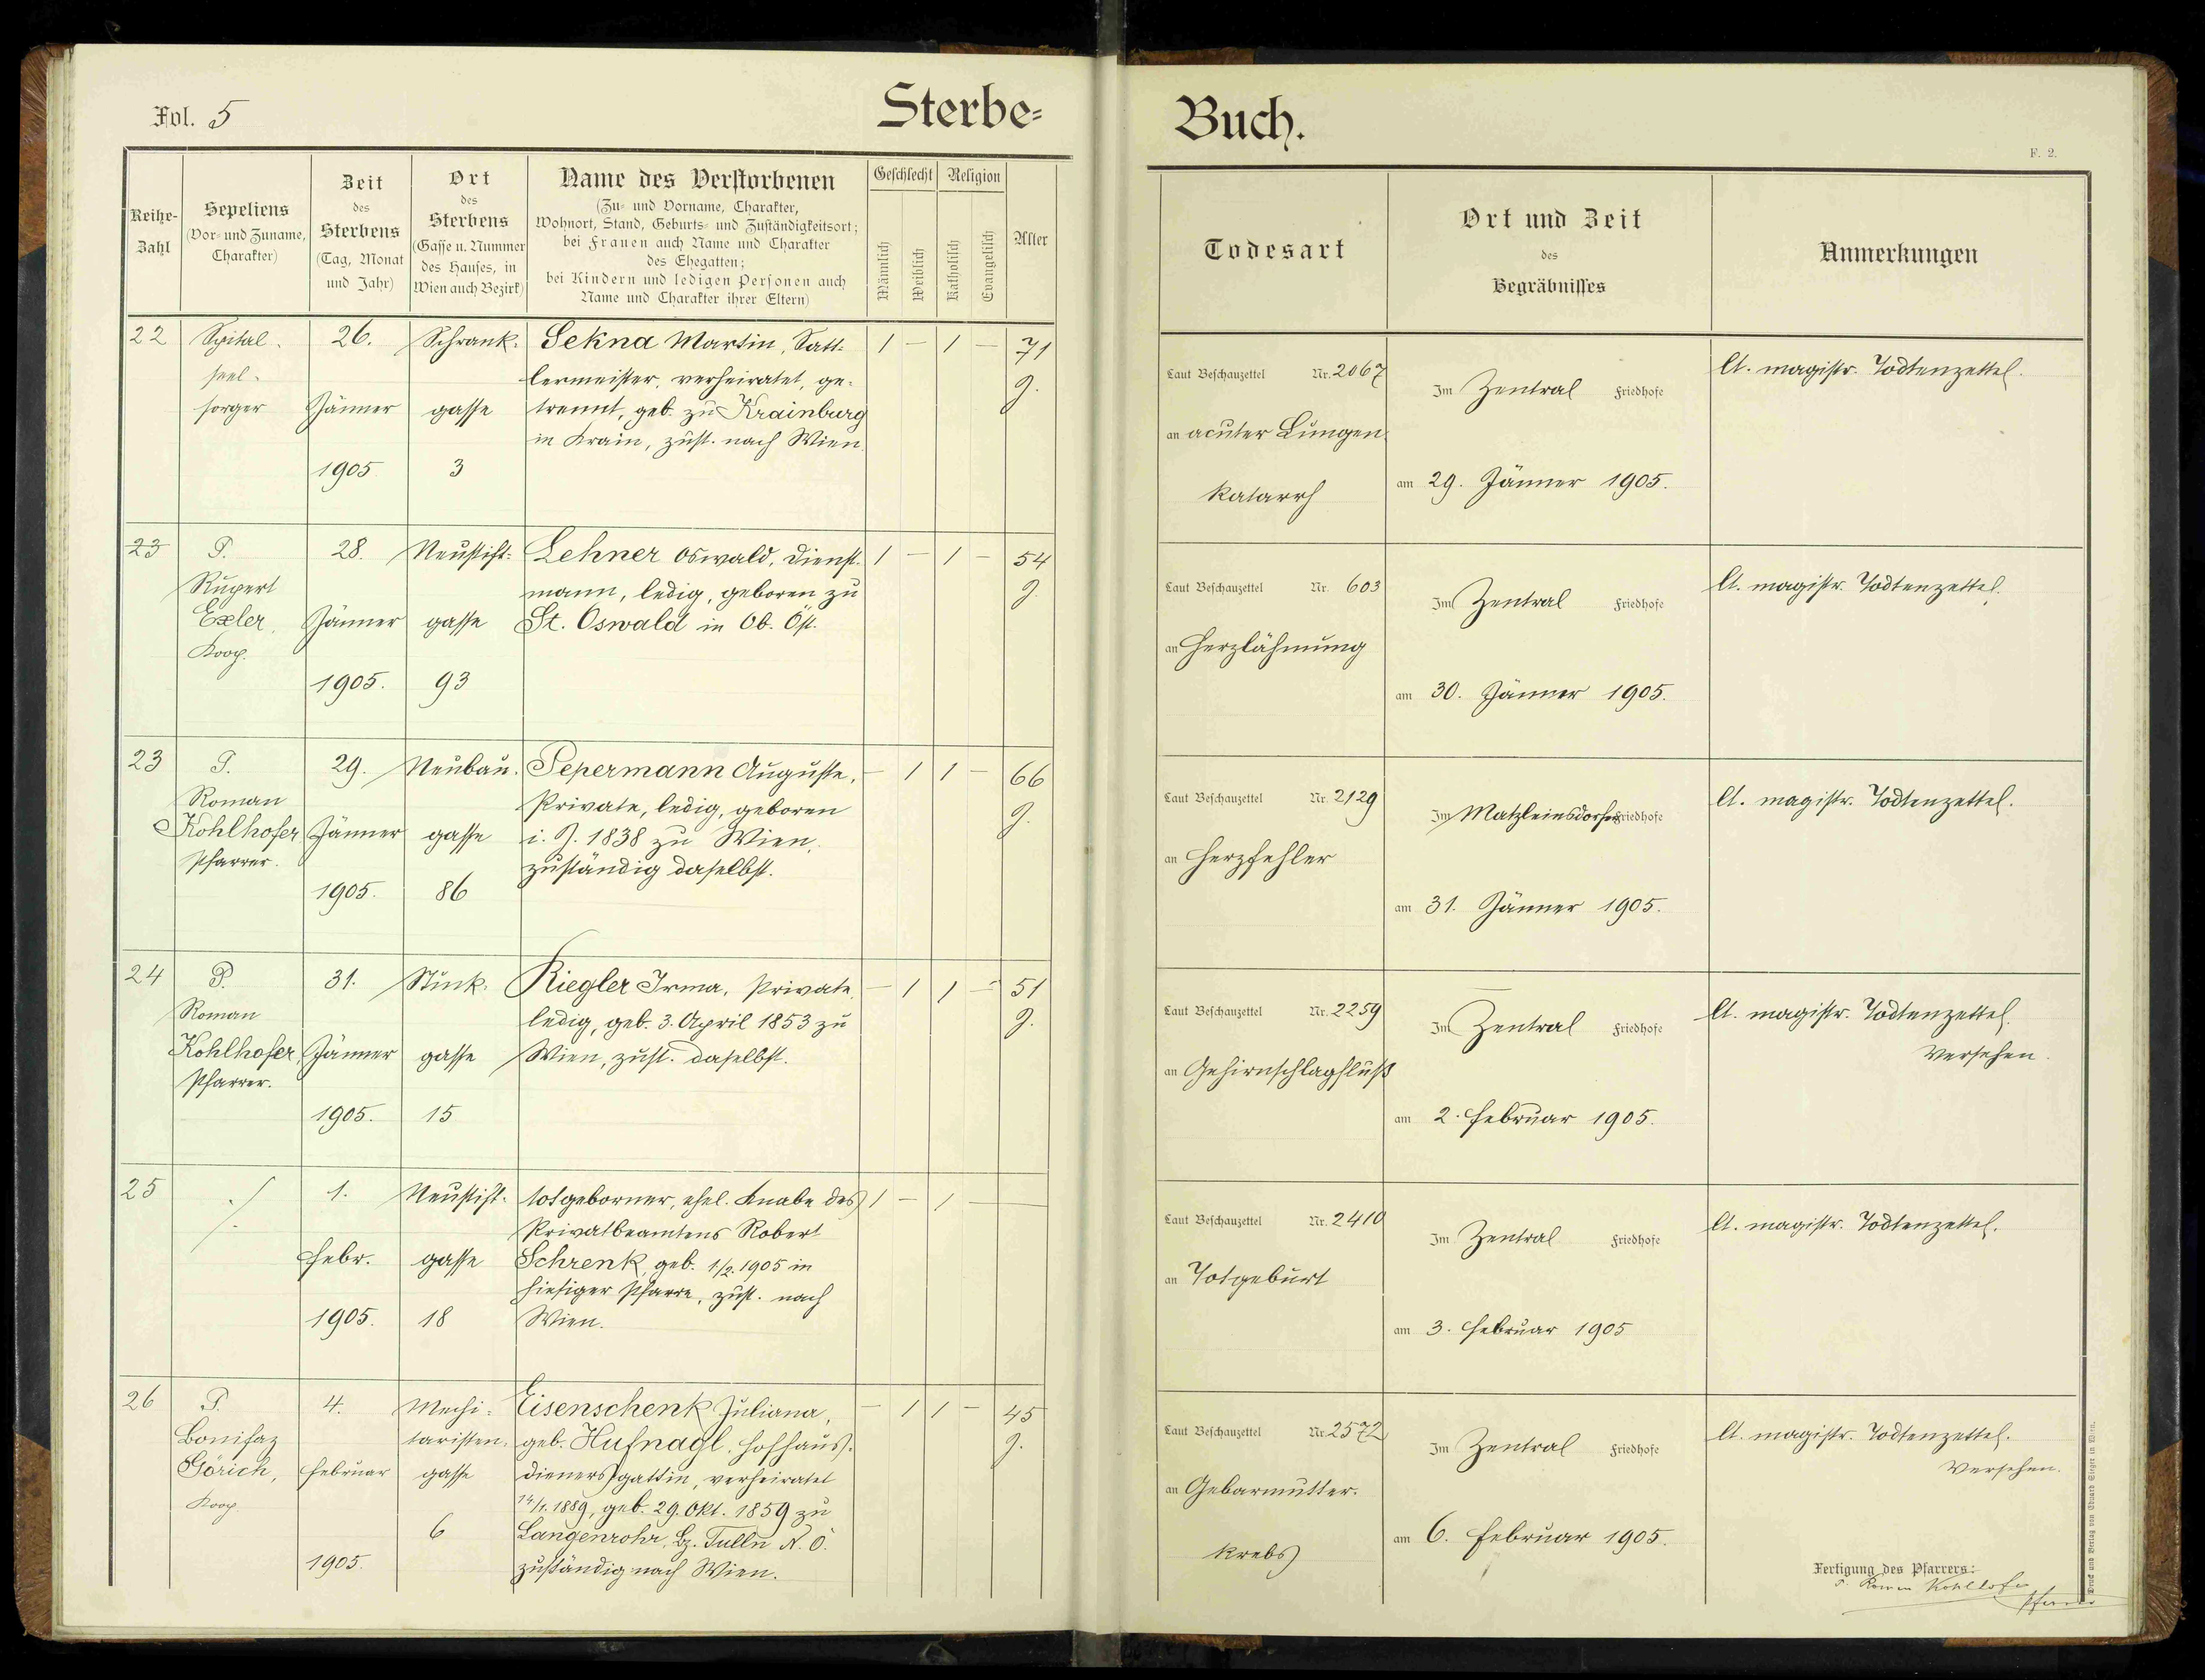 Fol. 5
Sterbe=
Buch.
F. 2.
Reihe-
Zahl
Sepeliens
(Vor= und Zuname,
Charakter)
Zeit
des
Sterbens
(Tag, Monat
und Jahr)
Ort
des
Sterbens
(Gasse u. Nummer
des Hauses, in
Wien auch Bezirk)
Name des Verstorbenen
(Zu= und Vorname, Charakter,
Wohnort, Stand, Geburts= und Zuständigkeitsort;
bei Frauen auch Name und Charakter
des Ehegatten;
bei Kindern und ledigen Personen auch
Name und Charakter ihrer Eltern)
Geschlecht
Männlich
Weiblich
Religion
Katholisch
Evangelisch
Alter
Todesart
Ort und Zeit
des
Begräbnisses
Anmerkungen
22
Spital-
seel-
sorger
26.
Jänner
1905
Schrank-
gasse
3
Sekna Martin, Satt-
lermeister, verheiratet, ge-
trennt, geb. zu Krainburg
in Krain, zust. nach Wien.
1 — 1 —
71
J.
Laut Beschauzettel Nr. 2067
an acuter Lungen-
katarrh
Im Zentral Friedhofe
am 29. Jänner 1905.
lt. magistr. Todtenzettel.
23
P.
Rupert
Exler,
Koop.
28.
Jänner
1905.
Neustift-
gasse
93
Lehner Oswald, Dienst-
mann, ledig, geboren zu
St. Oswald in Ob. Öst.
1 — 1 —
54
J.
Laut Beschauzettel Nr. 603
an Herzlähmung
Im Zentral Friedhofe
am 30. Jänner 1905.
lt. magistr. Todtenzettel.
23
P.
Roman
Kohlhofer
Pfarrer.
29.
Jänner
1905.
Neubau-
gasse
86
Pepermann Auguste,
Private, ledig, geboren
i. J. 1838 zu Wien,
zuständig daselbst.
— 1 1 —
66
J.
Laut Beschauzettel Nr. 2129
an Herzfehler
Im Matzleinsdorfer Friedhofe
am 31. Jänner 1905.
lt. magistr. Todtenzettel.
24
P.
Roman
Kohlhofer,
Pfarrer.
31.
Jänner
1905.
Stuck-
gasse
15
Riegler Irma, Private,
ledig, geb. 3. April 1853 zu
Wien, zust. daselbst.
— 1 1 —
51
J.
Laut Beschauzettel Nr. 2259
an Gehirnschlagfluß
Im Zentral Friedhofe
am 2. Februar 1905.
lt. magistr. Todtenzettel.
Versehen.
25
./.
1.
Febr.
1905.
Neustift-
gasse
18
totgeborner, ehel. Knabe des
Privatbeamtens Robert
Schrenk, geb. 1/2. 1905 in
hiesiger Pfarre, zust. nach
Wien.
1 — 1 —
Laut Beschauzettel Nr. 2410
an Totgeburt
Im Zentral Friedhofe
am 3. Februar 1905
lt. magistr. Todtenzettel.
26
P.
Bonifaz
Görich,
Koop.
4.
Februar
1905.
Mechi-
taristen-
gasse
6
Eisenschenk Juliana,
geb. Hufnagl, Hofhaus-
dienersgattin, verheiratet
1889, geb. 29. Okt. 1859 zu
Langenrohr, Bz. Tulln N. Ö.
zuständig nach Wien.
— 1 1 —
45
J.
Laut Beschauzettel Nr. 2572
an Gebärmutter-
krebs
Im Zentral Friedhofe
am 6. Februar 1905.
lt. magistr. Todtenzettel.
Versehen.
Fertigung des Pfarrers:
P. Roman Kohlhofer
Pfarrer
Druck und Verlag von Eduard Sieger in Wien.